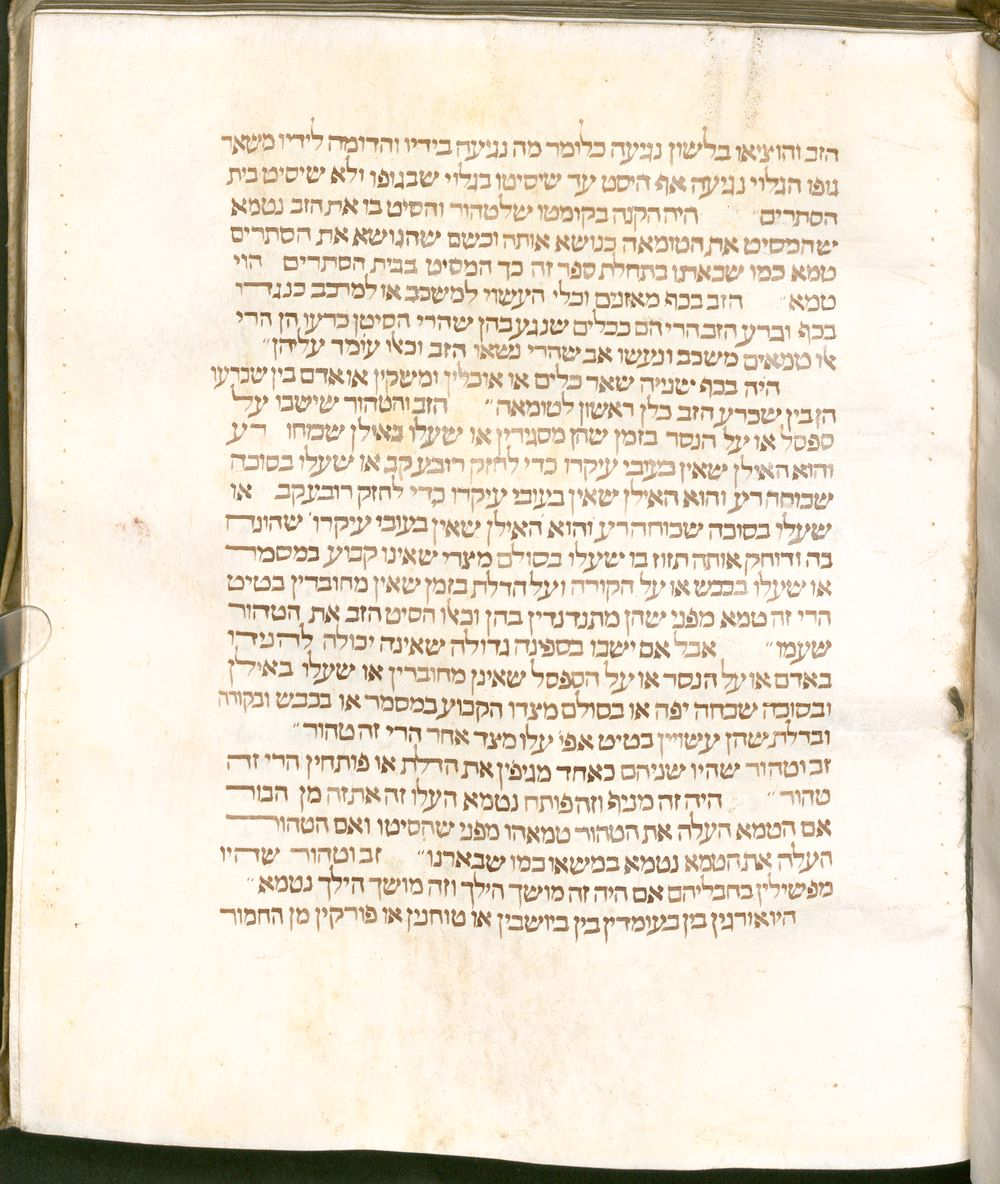 הזב והוציאו בלשון נגיעה כלומר מה נגיעה בידיו והדומה לידיו משאר
גופו הגלוי נגיעה אף היסט עד שיסיטו בגלוי שבגופו ולא שיסיט בית
הסתרים״ היה הקנה בקומטו שלטהור והסיט בו את הזב נטמא
שהמסיט את הטומאה כנושא אותה וכשם שהנושא את הסתרים
טמא כמו שבארנו בתחלת ספר זה כך המסיט בבית הסתרים הוי
טמא״ הזב בכף מאזנים וכלי העשוי למשכב או למרכב כנגדו
בכף וכרע הזב הרי הם ככלים שנגע בהן שהרי הסיטן כרעו הן הרי
אלו טמאים משכב ונעשו אב שהרי נשאו הזב וכאלו עומד עליהן״
היה בכף שנייה שאר כלים או אוכלין ומשקין או אדם בין שכרעו
הן בין שכרע הזב כלן ראשון לטומאה״ הזב והטהור שישבו על
ספסל או על הנסר בזמן שהן מסגירין או שעלו באילן שכוחו רע
והוא האילן שאין בעובי עיקרו כדי לחזק רובע קב או שעלו בסוכה
שכוחה רע והוא האילן שאין בעובי עיקרו כדי לחזק רובע קב או
שעלו בסוכה שכוחה רע והוא האילן שאין בעובי עיקרו שהונח
בה ודוחק אותה תזוז בו שעלו בסולם מצרי שאינו קבוע במסמר
או שעלו בכבש או על הקורה ועל הדלת בזמן שאין מחוברין בטיט
הרי זה טמא מפני שהן מתנדנדין בהן וכאלו הסיט הזב את הטהור
שעמו״ אבל אם ישבו בספינה גדולה שאינה יכולה להנידו
באדם או על הנסר או על הספסל שאינן מחוברין או שעלו באילן
ובסוכה שכחה יפה או בסולם מצרו הקבוע במסמר או בכבש ובקורה
ובדלת שהן עישויין בטיט אפי׳ עלו מצד אחד הרי זה טהור״
זב וטהור שהיו שניהם כאחד מגיפין את הדלת או פותחין הרי זה
טהור״ היה זה מגיף וזה פותח נטמא העלו זה את זה מן הבור
אם הטמא העלה את הטהור טמאהו מפני שהסיטו ואם הטהור
העלה את הטמא נטמא במישאו כמו שבארנו״ זב וטהור שהיו
מפשילין בחבליהם אם היה זה מושך הילך וזה מושך הילך נטמא״
היו אורגין בין בעומדין בין ביושבין או טוחנין או פורקין מן החמור